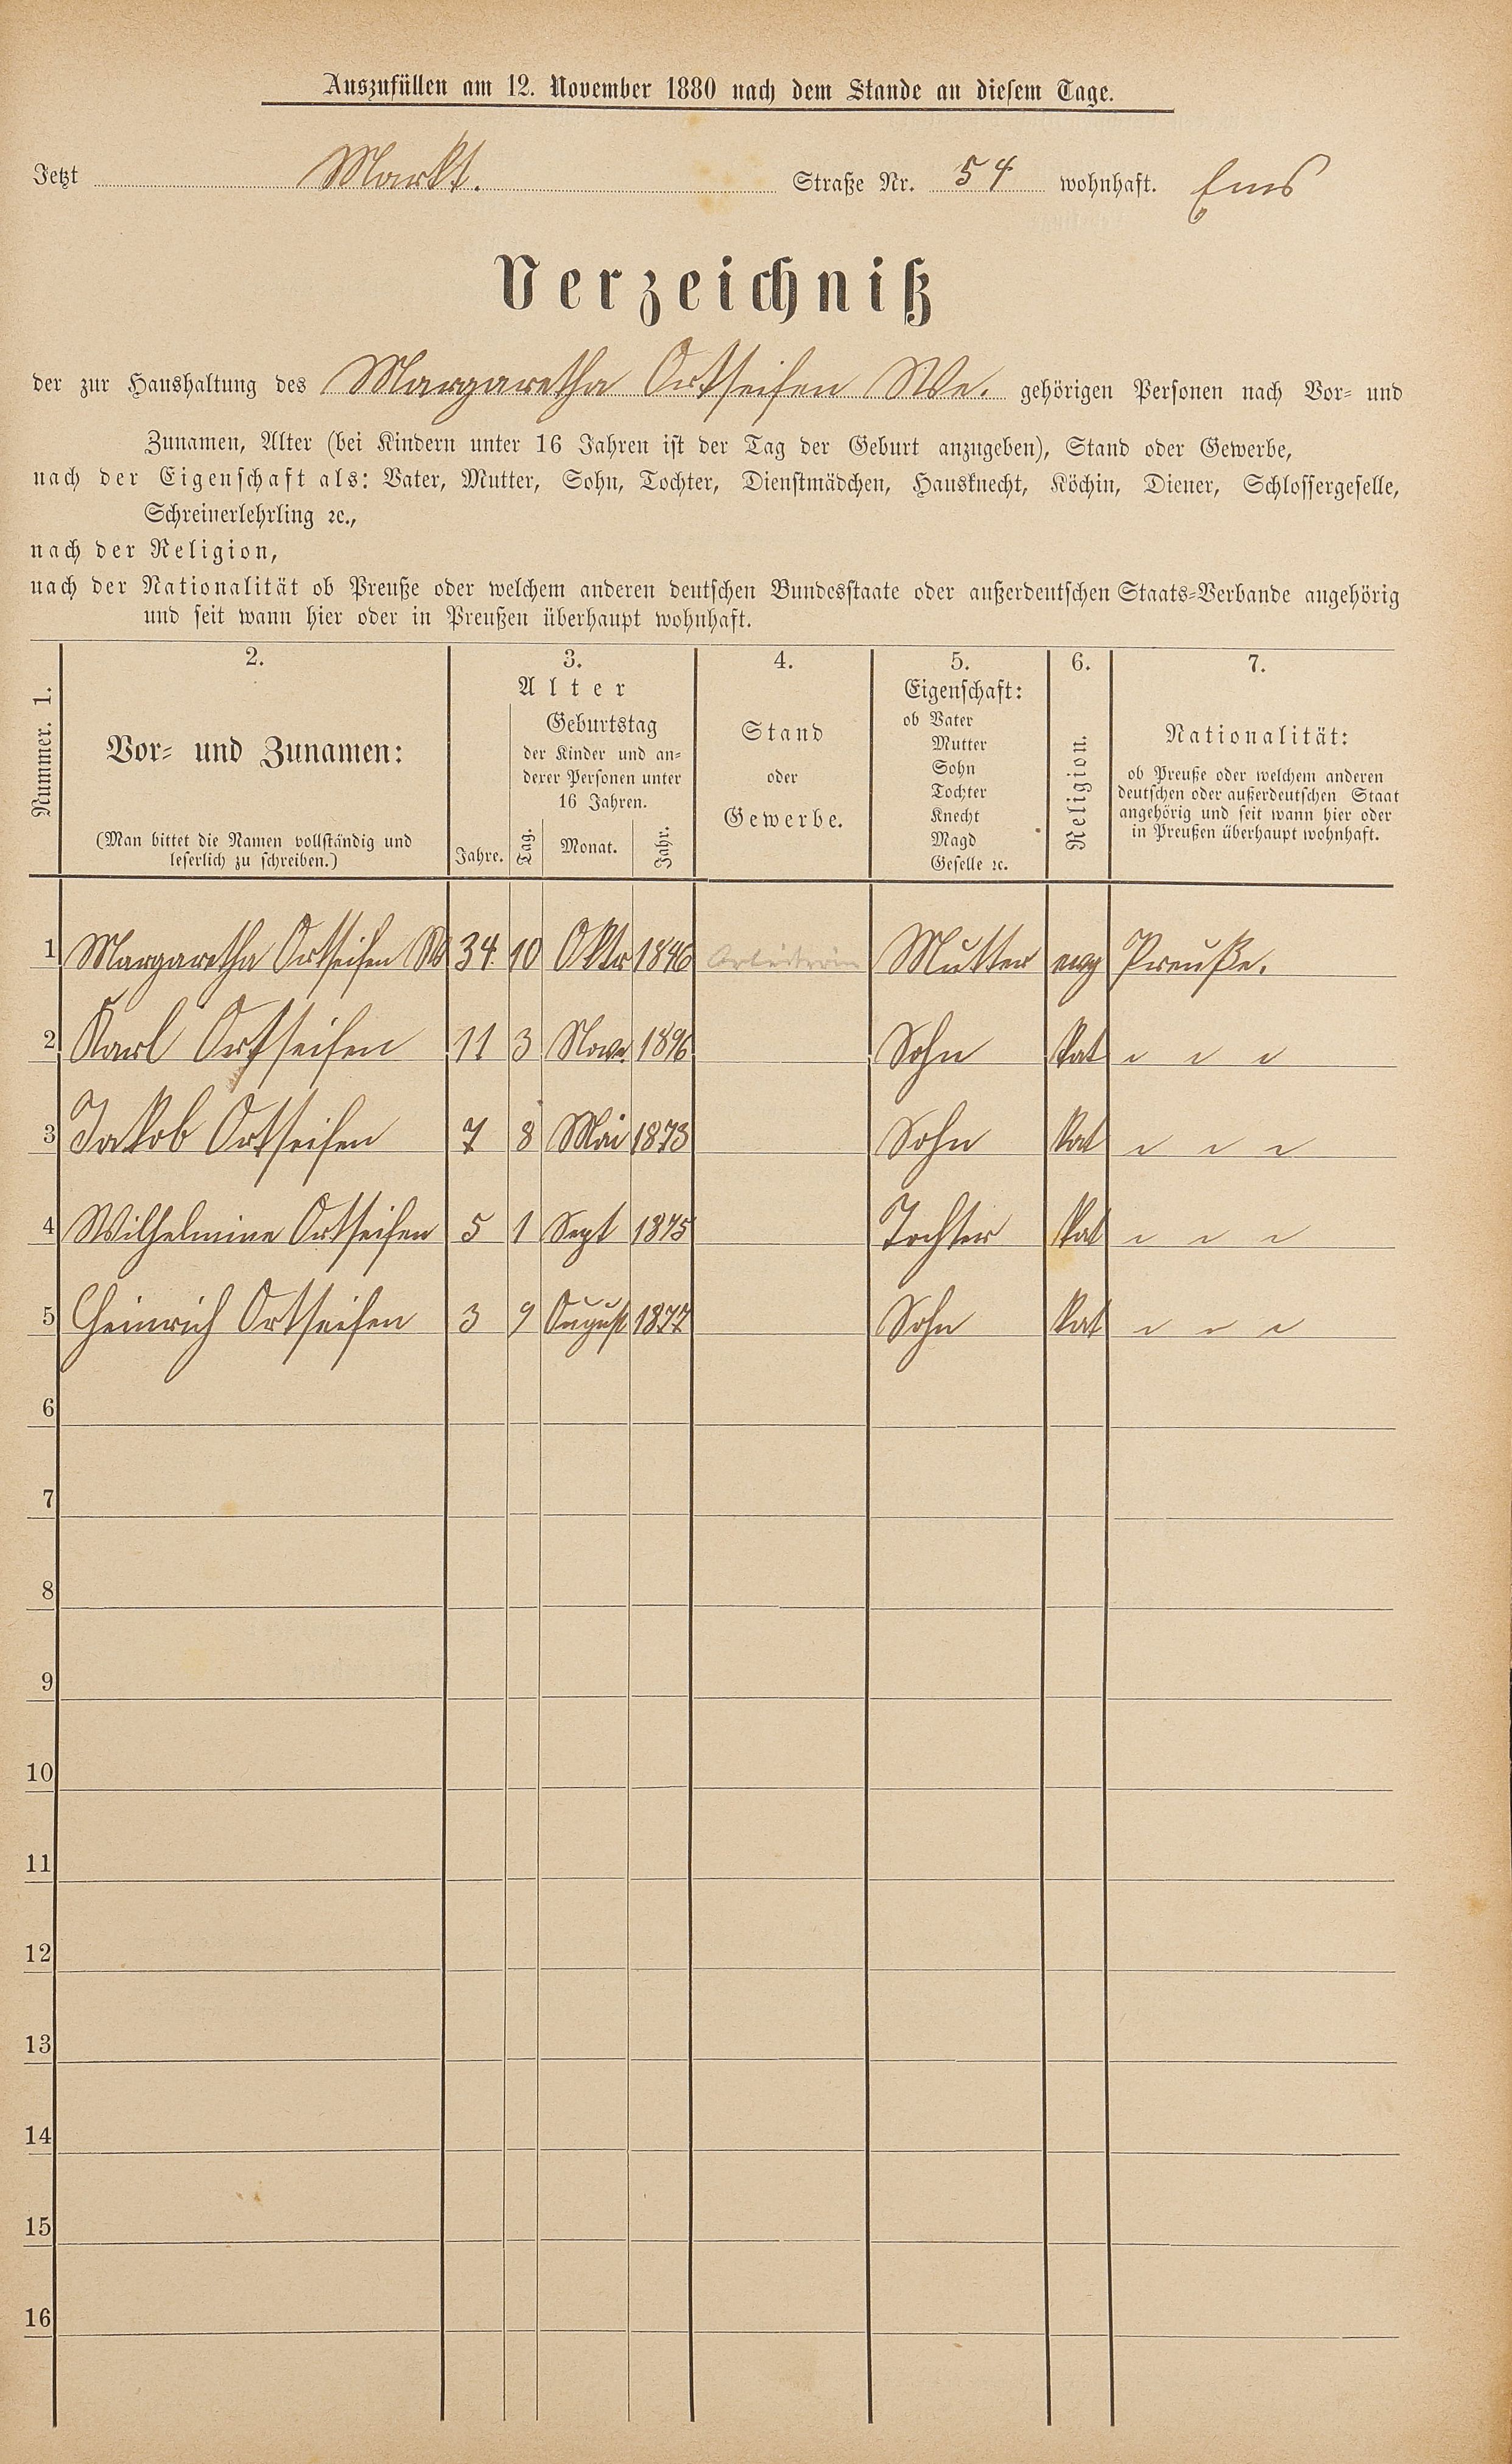 Auszufüllen am 12. November 1880 nach dem Stande an diesem Tage.
Jetzt Markt. Straße Nr. 54 wohnhaft. Ems
Verzeichniß
der zur Haushaltung des Margaretha Ortseifen We. gehörigen Personen nach Vor- und
Zunamen, Alter (bei Kindern unter 16 Jahren ist der Tag der Geburt anzugeben), Stand oder Gewerbe,
nach der Eigenschaft als: Vater, Mutter, Sohn, Tochter, Dienstmädchen, Hausknecht, Köchin, Diener, Schlossergeselle,
Schreinerlehrling ꝛc.,
nach der Religion,
nach der Nationalität ob Preuße oder welchem anderen deutschen Bundesstaate oder außerdeutschen Staats-Verbande angehörig
und seit wann hier oder in Preußen überhaupt wohnhaft.
Nummer. 1.
2.
Vor- und Zunamen:
(Man bittet die Namen vollständig und
leserlich zu schreiben.)
3.
Alter
Jahre.
Geburtstag
der Kinder und an-
derer Personen unter
16 Jahren.
Tag. Monat. Jahr.
4.
Stand
oder
Gewerbe.
5.
Eigenschaft:
ob Vater
Mutter
Sohn
Tochter
Knecht
Magd
Geselle ꝛc.
6.
Religion.
7.
Nationalität:
ob Preuße oder welchem anderen
deutschen oder außerdeutschen Staat
angehörig und seit wann hier oder
in Preußen überhaupt wohnhaft.
1 Margaretha Ortseifen We 34 10 Oktr 1846 Arbeiterin Mutter evg Preuße.
2 Karl Ortseifen 11 3 Novr Sohn Kat " " "
3 Jakob Ortseifen 7 8 Mai 1873 Sohn Kat " " "
4 Wilhelmine Ortseifen 5 1 Sept 1875 Tochter Kat " " "
5 Heinrich Ortseifen 3 9 August 1877 Sohn Kat " " "
6
7
8
9
10
11
12
13
14
15
16